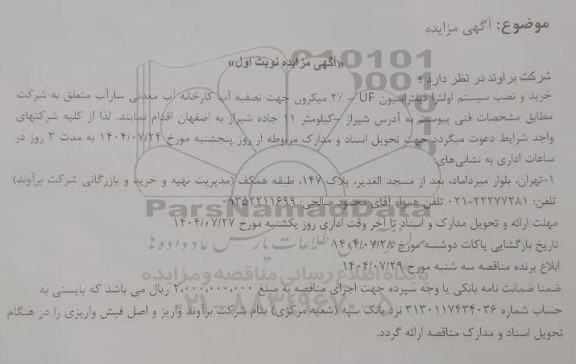 موضوع: آگهی مزایده
«آگهی مزایده نوبت اول»
شرکت برآوند در نظر دارد :
خرید و نصب سیستم اولترا فیلتراسیون UF - ۲٪ میکرون جهت تصفیه آب کارخانه آب معدنی سارآب متعلق به شرکت
مطابق مشخصات فنی پیوست به آدرس شیراز -کیلومتر ۱۱ جاده شیراز به اصفهان اقدام نمایند. لذا از کلیه شرکتهای
واجد شرایط دعوت میگردد جهت تحویل اسناد و مدارک مربوطه از روز پنجشنبه مورخ ۱۴۰۴/۰۷/۲۴ به مدت ۳ روز در
ساعات اداری به نشانی‌های:
۱-تهران، بلوار میرداماد، بعد از مسجد الغدیر، پلاک ۱۴۷، طبقه همکف (مدیریت تهیه و خرید و بازرگانی شرکت برآوند)
تلفن: ۲۲۲۷۷۲۸۱-۰۲۱ تلفن همراه آقای محمود صالحی: ۰۹۳۵۲۲۱۱۶۹۹
مهلت ارائه و تحویل مدارک و اسناد تا آخر وقت اداری روز یکشنبه مورخ ۱۴۰۴/۰۷/۲۷
تاریخ بازگشایی پاکات دوشنبه مورخ ۱۴۰۴/۰۷/۲۸
ابلاغ برنده مناقصه سه شنبه مورخ ۱۴۰۴/۰۷/۲۹
ضمنا ضمانت نامه بانکی یا وجه سپرده جهت اجرای مناقصه به مبلغ ۲,۰۰۰,۰۰۰,۰۰۰ ریال می باشد که بایستی به
حساب شماره ۳۱۳۰۱۱۷۴۳۴۰۳۶ نزد بانک سپه (شعبه مرکزی) بنام شرکت برآوند واریز و اصل فیش واریزی را در هنگام
تحویل اسناد و مدارک مناقصه ارائه گردد.
ParsNamadData
پایگاه اطلاع رسانی مناقصه و مزایده
۰۲۱-۸۸۳۴۹۶۷۰-۵